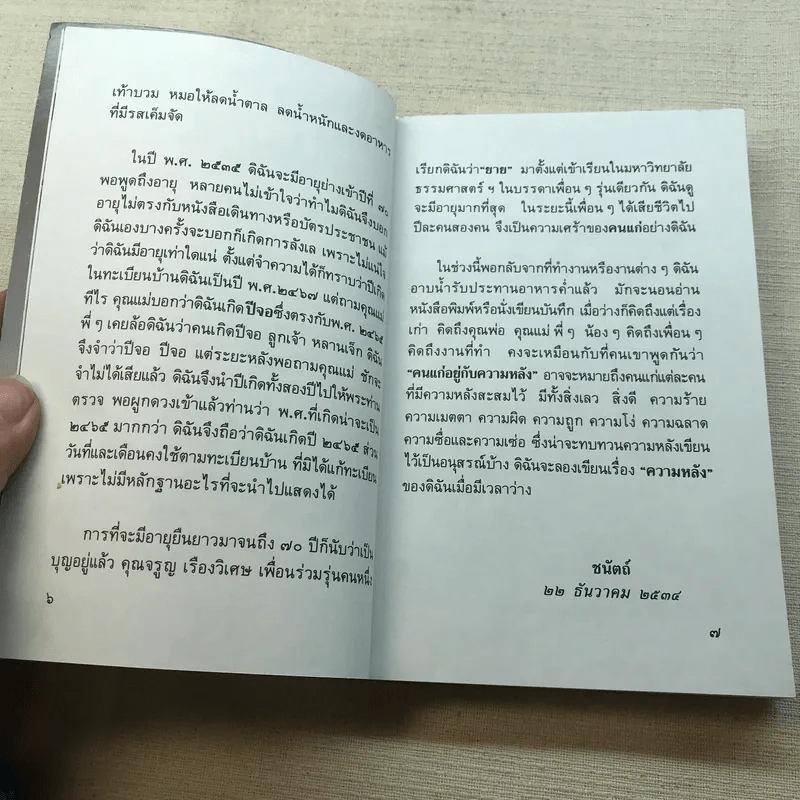 เท้าบวม หมอให้ลดน้ำตาล ลดน้ำหนักและงดอาหาร
ที่มีรสเค็มจัด
ในปี พ.ศ. ๒๕๓๕ ดิฉันจะมีอายุย่างเข้าปีที่ ๗๐
พอพูดถึงอายุ หลายคนไม่เข้าใจว่าทำไมดิฉันจึงบอก
อายุไม่ตรงกับหนังสือเดินทางหรือบัตรประชาชน แม้
ดิฉันเองบางครั้งจะบอกก็เกิดการลังเล เพราะไม่แน่ใจ
ว่าดิฉันมีอายุเท่าใดแน่ ตั้งแต่จำความได้ก็ทราบว่าปีเกิด
ในทะเบียนบ้านดิฉันเป็นปี พ.ศ.๒๔๖๗ แต่ถามคุณแม่
ทีไร คุณแม่บอกว่าดิฉันเกิดปีจอซึ่งตรงกับพ.ศ. ๒๔๖๕
พี่ ๆ เคยล้อดิฉันว่าคนเกิดปีจอ ลูกเจ้า หลานเจ็ก ดิฉัน
จึงจำว่าปีจอ ปีจอ แต่ระยะหลังพอถามคุณแม่ ชักจะ
จำไม่ได้เสียแล้ว ดิฉันจึงนำปีเกิดทั้งสองปีไปให้พระท่าน
ตรวจ พอผูกดวงเข้าแล้วท่านว่า พ.ศ.ที่เกิดน่าจะเป็น
๒๔๖๕ มากกว่า ดิฉันจึงถือว่าดิฉันเกิดปี ๒๔๖๕ ส่วน
วันที่และเดือนคงใช้ตามทะเบียนบ้าน ที่มิได้แก้ทะเบียน
เพราะไม่มีหลักฐานอะไรที่จะนำไปแสดงได้
การที่จะมีอายุยืนยาวมาจนถึง ๗๐ ปีก็นับว่าเป็น
บุญอยู่แล้ว คุณจรูญ เรืองวิเศษ เพื่อนร่วมรุ่นคนหนึ่ง
๖
เรียกดิฉันว่า“ยาย” มาตั้งแต่เข้าเรียนในมหาวิทยาลัย
ธรรมศาสตร์ ฯ ในบรรดาเพื่อน ๆ รุ่นเดียวกัน ดิฉันดู
จะมีอายุมากที่สุด ในระยะนี้เพื่อน ๆ ได้เสียชีวิตไป
ปีละคนสองคน จึงเป็นความเศร้าของคนแก่อย่างดิฉัน
ในช่วงนี้พอกลับจากที่ทำงานหรืองานต่าง ๆ ดิฉัน
อาบน้ำรับประทานอาหารค่ำแล้ว มักจะนอนอ่าน
หนังสือพิมพ์หรือนั่งเขียนบันทึก เมื่อว่างก็คิดถึงแต่เรื่อง
เก่า คิดถึงคุณพ่อ คุณแม่ พี่ ๆ น้อง ๆ คิดถึงเพื่อน ๆ
คิดถึงงานที่ทำ คงจะเหมือนกับที่คนเขาพูดกันว่า
“คนแก่อยู่กับความหลัง” อาจจะหมายถึงคนแก่แต่ละคน
ที่มีความหลังสะสมไว้ มีทั้งสิ่งเลว สิ่งดี ความร้าย
ความเมตตา ความผิด ความถูก ความโง่ ความฉลาด
ความซื่อและความเซ่อ ซึ่งน่าจะทบทวนความหลังเขียน
ไว้เป็นอนุสรณ์บ้าง ดิฉันจะลองเขียนเรื่อง “ความหลัง”
ของดิฉันเมื่อมีเวลาว่าง
ชนัตถ์
๒๒ ธันวาคม ๒๕๓๔
๗